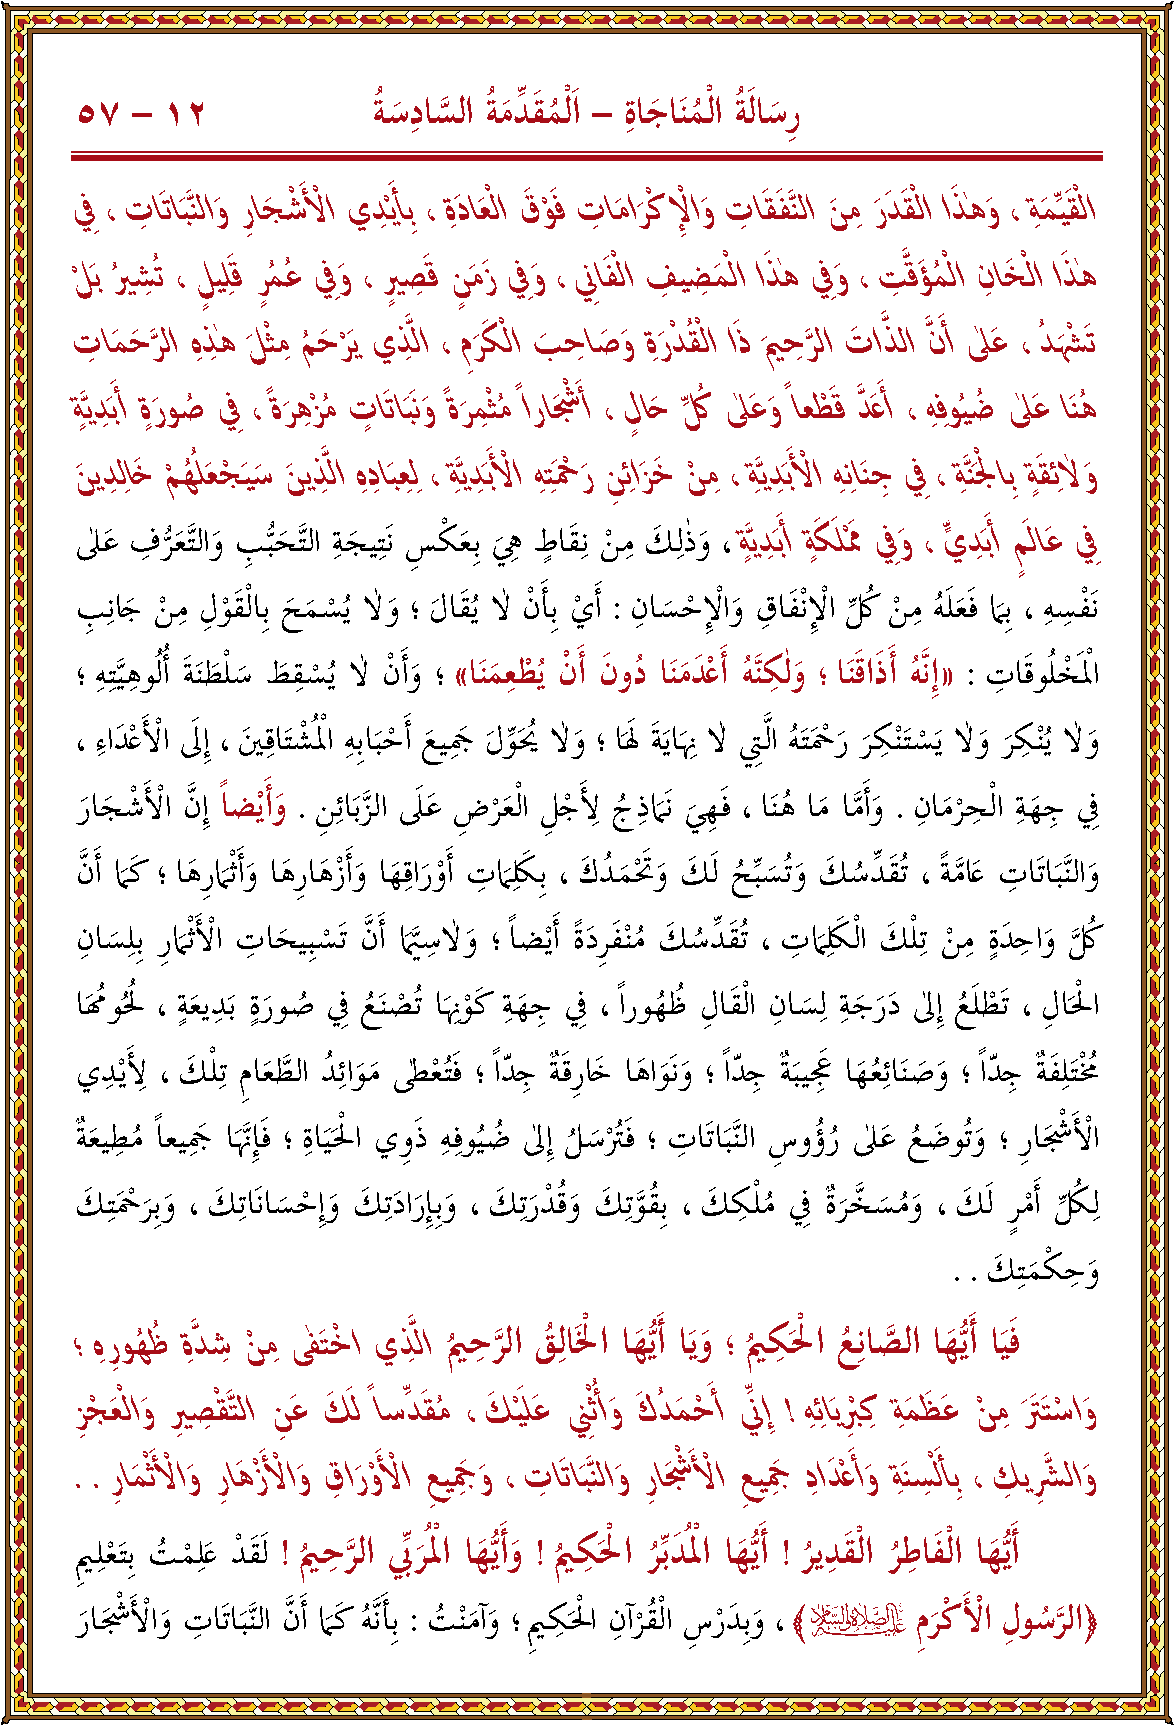 رِسَالَةُ الْمُنَاجَاةِ – اَلْمُقَدِّمَةُ السَّادِسَةُ ١٢ – ٥٧
الْقَيِّمَةِ ، وَهٰذَا الْقَدَرَ مِنَ النَّفَقَاتِ وَالْإِكْرَامَاتِ فَوْقَ الْعَادَةِ ، بِأَيْدِي الْأَشْجَارِ وَالنَّبَاتَاتِ ، فِي
هٰذَا الْخَانِ الْمُؤَقَّتِ ، وَفِي هٰذَا الْمَضِيفِ الْفَانِي ، وَفِي زَمَنٍ قَصِيرٍ ، وَفِي عُمُرٍ قَلِيلٍ ، تُشِيرُ بَلْ
تَشْهَدُ ، عَلٰى أَنَّ الذَّاتَ الرَّحِيمَ ذَا الْقُدْرَةِ وَصَاحِبَ الْكَرَمِ ، الَّذِي يَرْحَمُ مِثْلَ هٰذِهِ الرَّحَمَاتِ
هُنَا عَلٰى ضُيُوفِهِ ، أَعَدَّ قَطْعاً وَعَلٰى كُلِّ حَالٍ ، أَشْجَاراً مُثْمِرَةً وَنَبَاتَاتٍ مُزْهِرَةً ، فِي صُورَةٍ أَبَدِيَّةٍ
وَلٰائِقَةٍ بِالْجَنَّةِ ، فِي جِنَانِهِ الْأَبَدِيَّةِ ، مِنْ خَزَائِنِ رَحْمَتِهِ الْأَبَدِيَّةِ ، لِعِبَادِهِ الَّذِينَ سَيَجْعَلُهُمْ خَالِدِينَ
فِي عَالَمٍ أَبَدِيٍّ ، وَفِي مَمْلَكَةٍ أَبَدِيَّةٍ ، وَذٰلِكَ مِنْ نِقَاطٍ هِيَ بِعَكْسِ نَتِيجَةِ التَّحَبُّبِ وَالتَّعَرُّفِ عَلٰى
نَفْسِهِ ، بِمَا فَعَلَهُ مِنْ كُلِّ الْإِنْفَاقِ وَالْإِحْسَانِ : أَيْ بِأَنْ لٰا يُقَالَ ؛ وَلٰا يُسْمَحَ بِالْقَوْلِ مِنْ جَانِبِ
الْمَخْلُوقَاتِ : «إِنَّهُ أَذَاقَنَا ؛ وَلٰكِنَّهُ أَعْدَمَنَا دُونَ أَنْ يُطْعِمَنَا» ؛ وَأَنْ لٰا يُسْقِطَ سَلْطَنَةَ أُلُوهِيَّتِهِ ؛
وَلٰا يُنْكِرَ وَلٰا يَسْتَنْكِرَ رَحْمَتَهُ الَّتِي لٰا نِهَايَةَ لَهَا ؛ وَلٰا يُحَوِّلَ جَمِيعَ أَحْبَابِهِ الْمُشْتَاقِينَ ، إِلَى الْأَعْدَاءِ ،
فِي جِهَةِ الْحِرْمَانِ . وَأَمَّا مَا هُنَا ، فَهِيَ نَمَاذِجُ لِأَجْلِ الْعَرْضِ عَلَى الزَّبَائِنِ . وَأَيْضاً إِنَّ الْأَشْجَارَ
وَالنَّبَاتَاتِ عَامَّةً ، تُقَدِّسُكَ وَتُسَبِّحُ لَكَ وَتَحْمَدُكَ ، بِكَلِمَاتِ أَوْرَاقِهَا وَأَزْهَارِهَا وَأَثْمَارِهَا ؛ كَمَا أَنَّ
كُلَّ وَاحِدَةٍ مِنْ تِلْكَ الْكَلِمَاتِ ، تُقَدِّسُكَ مُنْفَرِدَةً أَيْضاً ؛ وَلٰاسِيَّمَا أَنَّ تَسْبِيحَاتِ الْأَثْمَارِ بِلِسَانِ
الْحَالِ ، تَطْلُعُ إِلٰى دَرَجَةِ لِسَانِ الْقَالِ ظُهُوراً ، فِي جِهَةِ كَوْنِهَا تُصْنَعُ فِي صُورَةٍ بَدِيعَةٍ ، لُحُومُهَا
مُخْتَلِفَةٌ جِدّاً ؛ وَصَنَائِعُهَا عَجِيبَةٌ جِدّاً ؛ وَنَوَاهَا خَارِقَةٌ جِدّاً ؛ فَتُعْطٰى مَوَائِدُ الطَّعَامِ تِلْكَ ، لِأَيْدِي
الْأَشْجَارِ ؛ وَتُوضَعُ عَلٰى رُؤُوسِ النَّبَاتَاتِ ؛ فَتُرْسَلُ إِلٰى ضُيُوفِهِ ذَوِي الْحَيَاةِ ؛ فَإِنَّهَا جَمِيعاً مُطِيعَةٌ
لِكُلِّ أَمْرٍ لَكَ ، وَمُسَخَّرَةٌ فِي مُلْكِكَ ، بِقُوَّتِكَ وَقُدْرَتِكَ ، وَبِإِرَادَتِكَ وَإِحْسَانَاتِكَ ، وَبِرَحْمَتِكَ
وَحِكْمَتِكَ . .
فَيَا أَيُّهَا الصَّانِعُ الْحَكِيمُ ؛ وَيَا أَيُّهَا الْخَالِقُ الرَّحِيمُ الَّذِي اخْتَفٰى مِنْ شِدَّةِ ظُهُورِهِ ؛
وَاسْتَتَرَ مِنْ عَظَمَةِ كِبْرِيَائِهِ ! إِنِّي أَحْمَدُكَ وَأُثْنِي عَلَيْكَ ، مُقَدِّساً لَكَ عَنِ التَّقْصِيرِ وَالْعَجْزِ
وَالشَّرِيكِ ، بِأَلْسِنَةِ وَأَعْدَادِ جَمِيعِ الْأَشْجَارِ وَالنَّبَاتَاتِ ، وَجَمِيعِ الْأَوْرَاقِ وَالْأَزْهَارِ وَالْأَثْمَارِ . .
أَيُّهَا الْفَاطِرُ الْقَدِيرُ ! أَيُّهَا الْمُدَبِّرُ الْحَكِيمُ ! وَأَيُّهَا الْمُرَبِّي الرَّحِيمُ ! لَقَدْ عَلِمْتُ بِتَعْلِيمِ
﴿الرَّسُولِ الْأَكْرَمِ عليه الصلاة والسلام﴾ ، وَبِدَرْسِ الْقُرْآنِ الْحَكِيمِ ؛ وَآمَنْتُ : بِأَنَّهُ كَمَا أَنَّ النَّبَاتَاتِ وَالْأَشْجَارَ